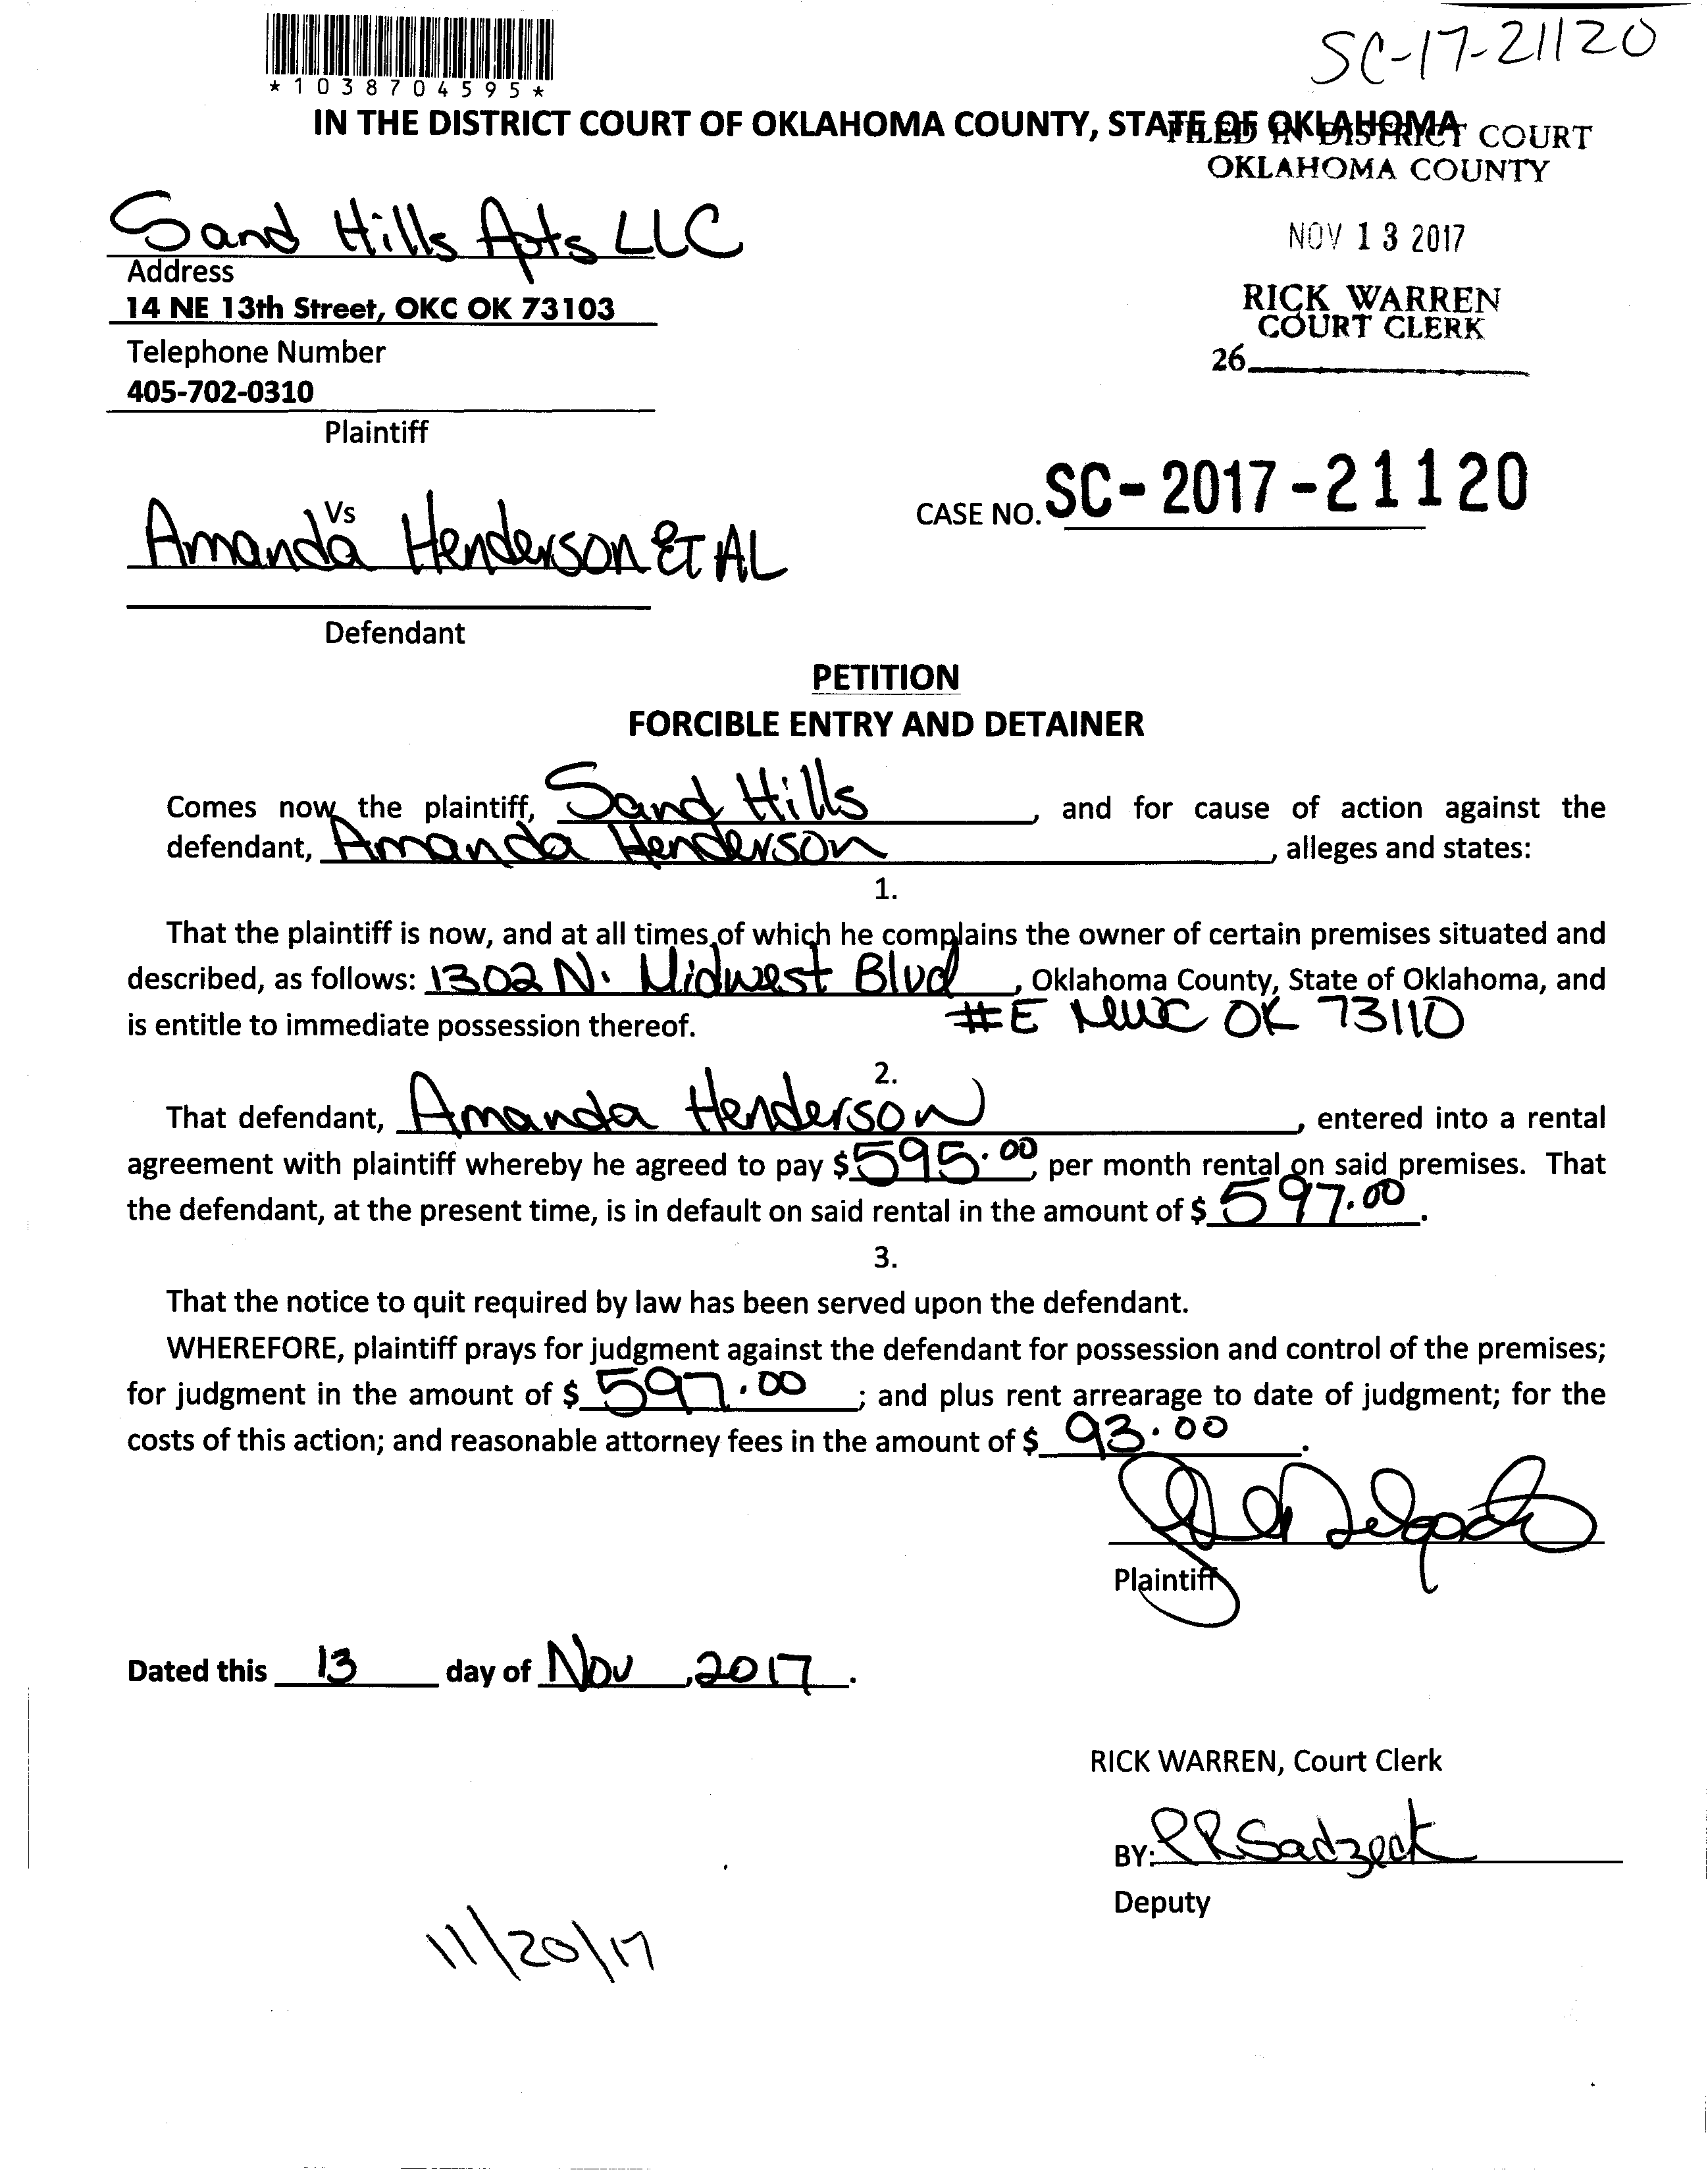 SC-17-21120
*1038704595*
IN THE DISTRICT COURT OF OKLAHOMA COUNTY, STATE OF OKLAHOMA
FILED IN DISTRICT COURT
OKLAHOMA COUNTY
Sand Hills Apts LLC
NOV 13 2017
Address
14 NE 13th Street, OKC OK 73103
RICK WARREN
COURT CLERK
Telephone Number
26
405-702-0310
Plaintiff
Vs
CASE NO. SC-2017-21120
Amanda Henderson ET AL
Defendant
PETITION
FORCIBLE ENTRY AND DETAINER
Comes now the plaintiff, Sand Hills, and for cause of action against the
defendant, Amanda Henderson, alleges and states:
1.
That the plaintiff is now, and at all times of which he complains the owner of certain premises situated and
described, as follows: 1302 N. Midwest Blvd, Oklahoma County, State of Oklahoma, and
is entitle to immediate possession thereof. #E MWC OK 73110
2.
That defendant, Amanda Henderson, entered into a rental
agreement with plaintiff whereby he agreed to pay $595.00 per month rental on said premises. That
the defendant, at the present time, is in default on said rental in the amount of $597.00.
3.
That the notice to quit required by law has been served upon the defendant.
WHEREFORE, plaintiff prays for judgment against the defendant for possession and control of the premises;
for judgment in the amount of $597.00; and plus rent arrearage to date of judgment; for the
costs of this action; and reasonable attorney fees in the amount of $93.00.
Delgado
Plaintiff
Dated this 13 day of Nov, 2017.
RICK WARREN, Court Clerk
BY: PRSadzeck
Deputy
11/20/17